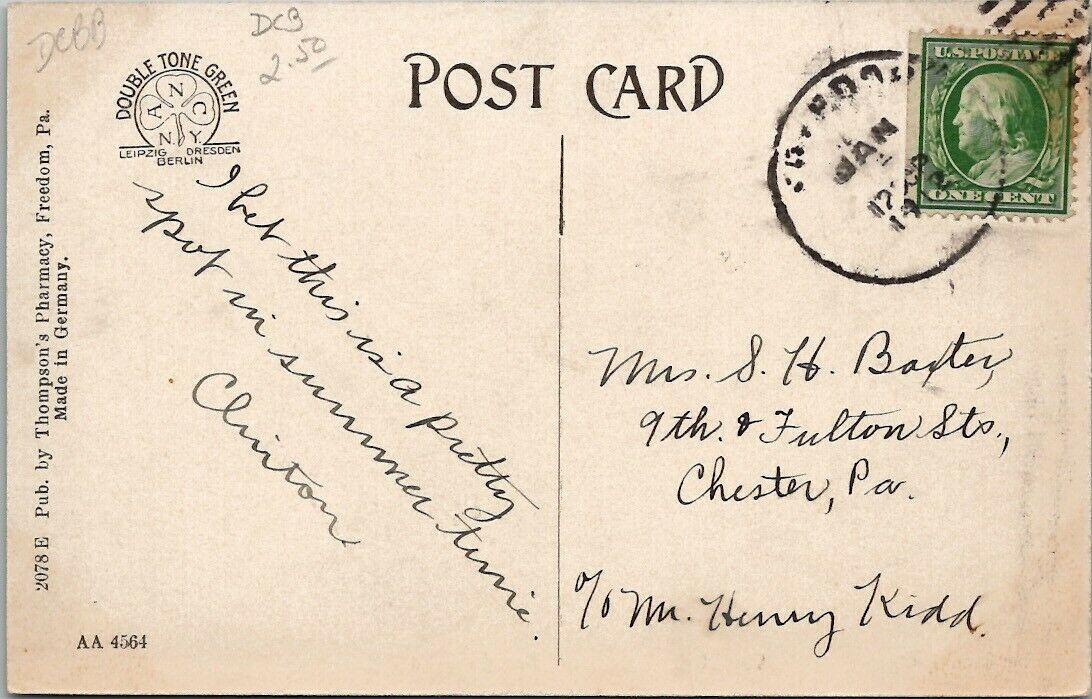 DCBB
DCB
2.50
DOUBLE TONE GREEN
A N C
N.Y.
LEIPZIG DRESDEN
BERLIN
POST CARD
U.S. POSTAGE
ONE CENT
JAN
I bet this is a pretty
spot in summer time.
Clinton
Mrs. S. H. Baxter,
9th. & Fulton Sts.,
Chester, Pa.
c/o Mr. Henry Kidd.
2078 E Pub. by Thompson's Pharmacy, Freedom, Pa.
Made in Germany.
AA 4564